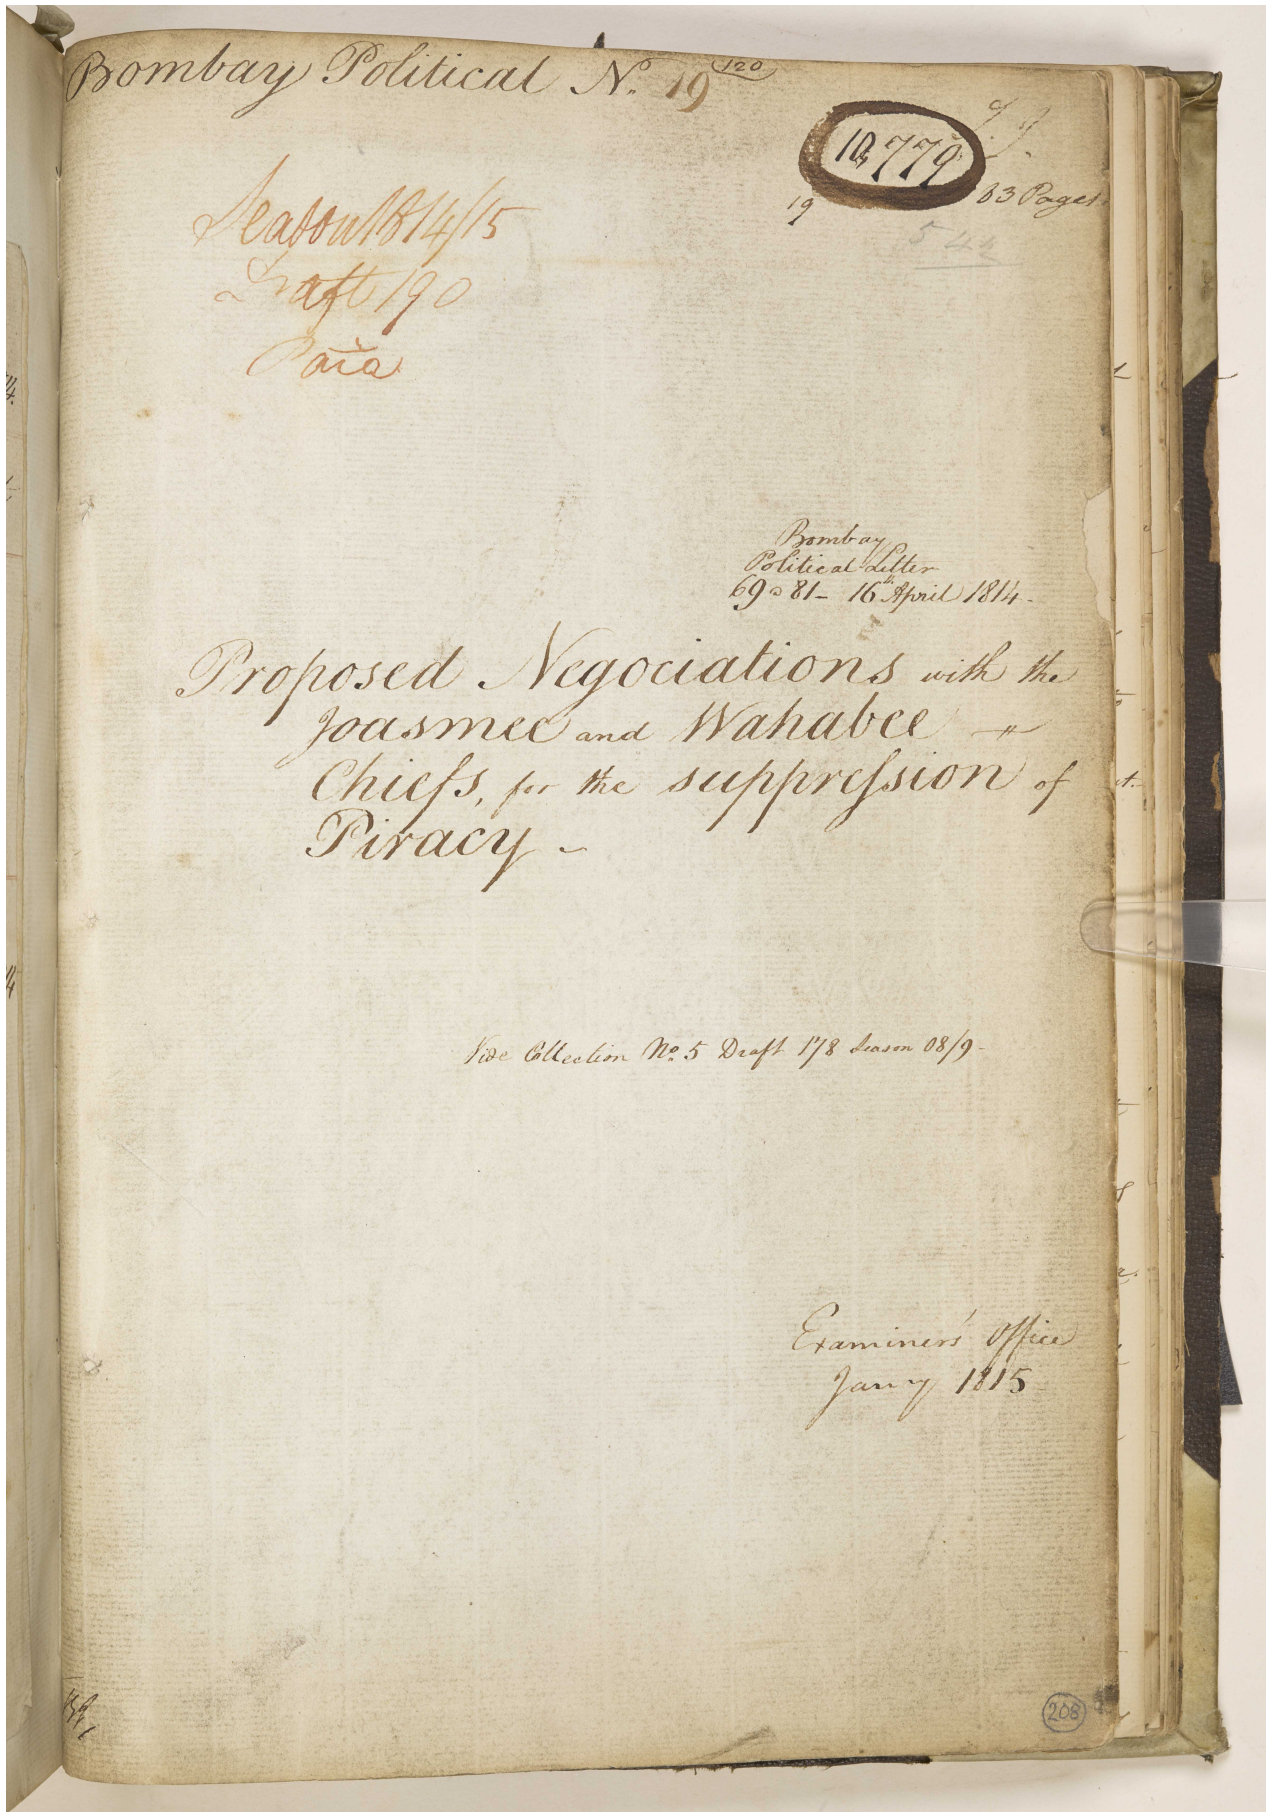 Bombay Political No. 19
120
10,779
19
83 Pages
544
Season 1814/15
Draft 190
Para
Bombay
Political Letter
69 @ 81 - 16th April 1814 -
Proposed Negociations with the
Joasmee and Wahabee
Chiefs, for the suppression of
Piracy -
Vide Collection No. 5 Draft 178 Season 08/9 -
Examiner's Office
Jany 1815
208